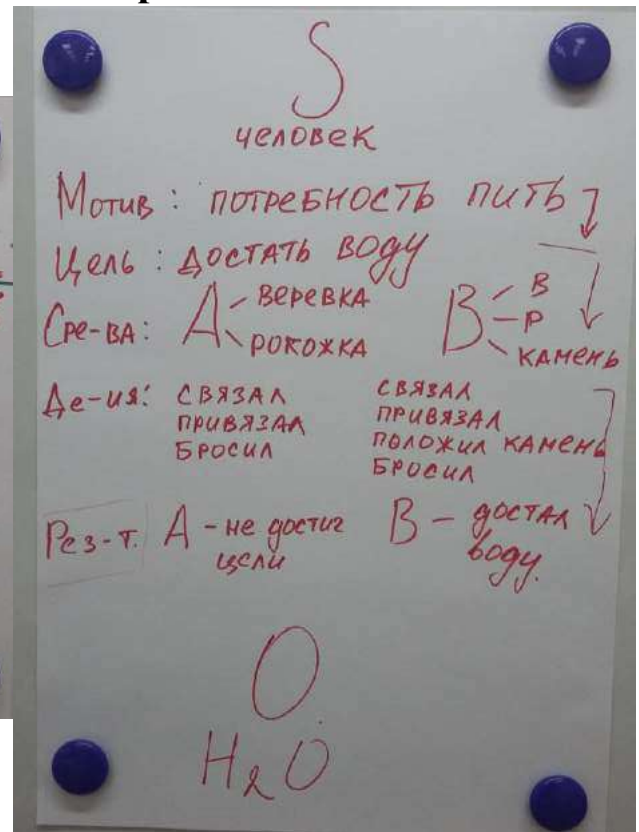 S
человек
Мотив: потребность пить
Цель: достать воду
Сре-ва: А веревка рокожка В В Р камень
Де-ия: связал привязал бросил
связал привязал положил камень бросил
Рез-т. А - не достиг цели В - достал воду.
О
H2O